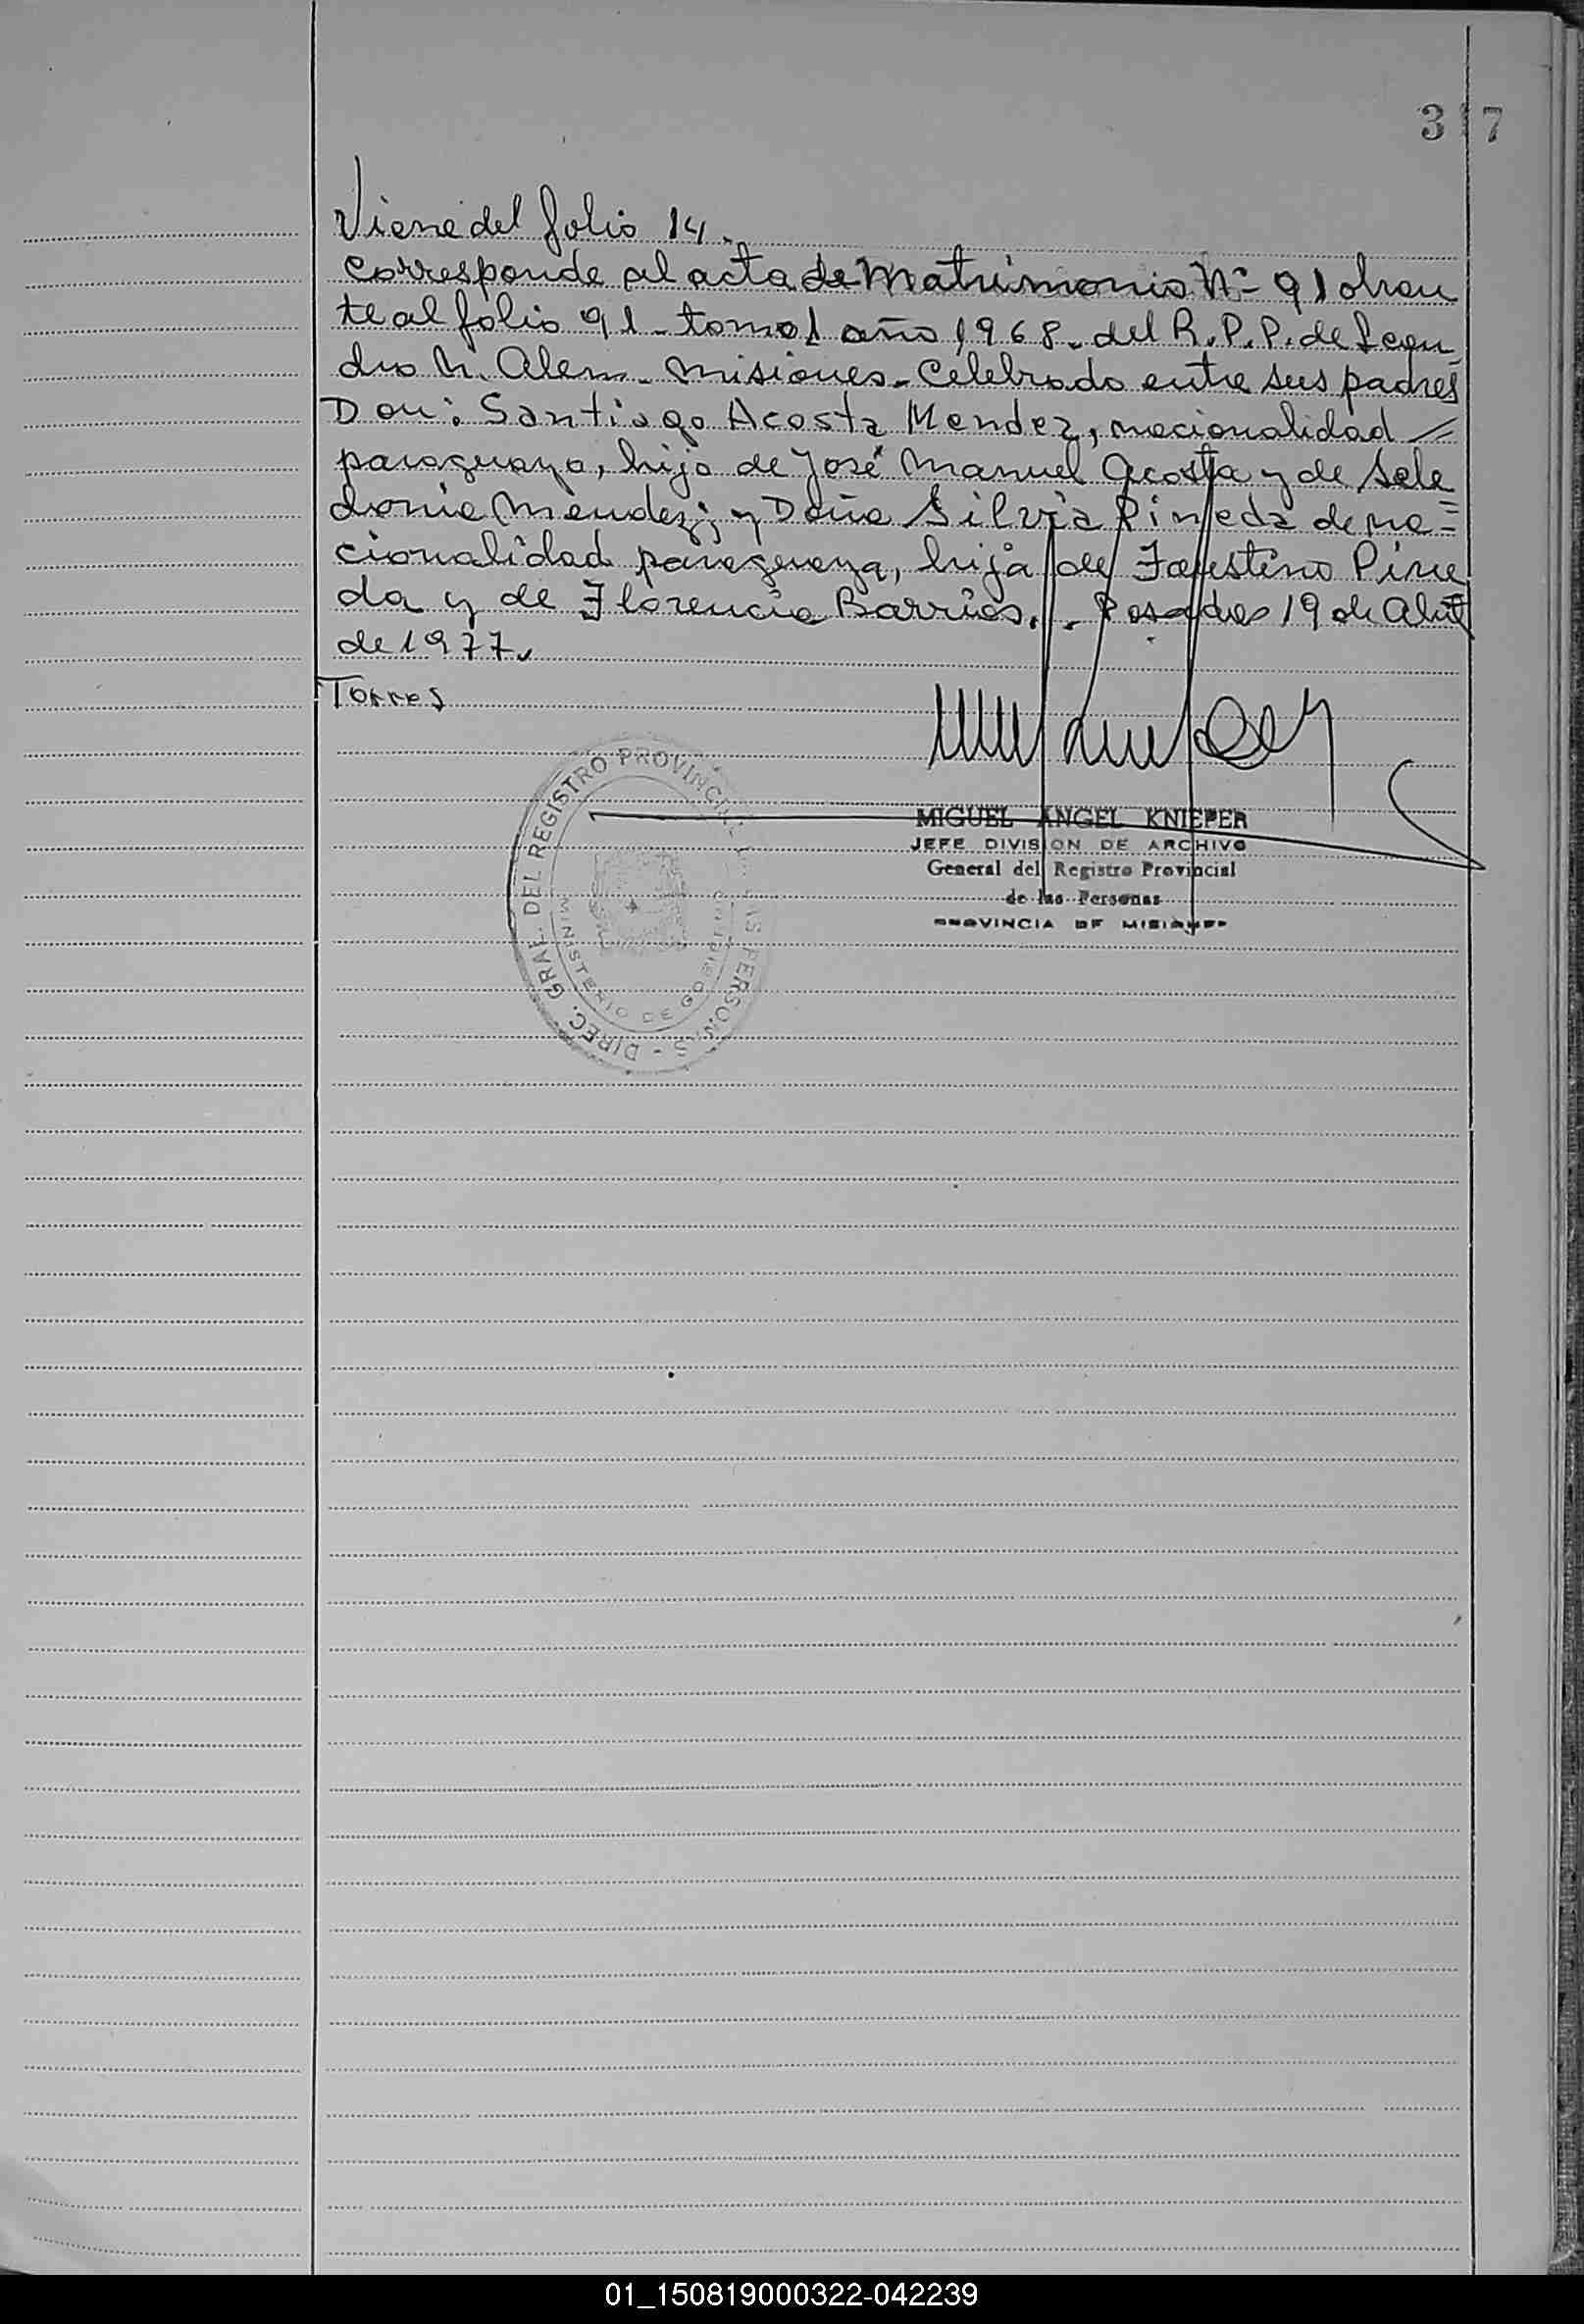 317
Viene del folio 14.
Corresponde al acta de Matrimonio Nº 91 obran
te al folio 91 - tomo 1 año 1968. del R.P.P. de Lean_
dro N. Alem - Misiones - Celebrado entre sus padres
Don: Santiago Acosta Mendez, nacionalidad =
paraguaya, hijo de José Manuel Acosta y de Sele_
donia Mendez; y Doña Silvia Pineda de na=
cionalidad paraguaya, hija de Faustino Pine_
da y de Florencia Barrios. . Posadas 19 de Abril
de 1977.
Torres
MIGUEL ANGEL KNIEPER
JEFE DIVISION DE ARCHIVO
General del Registro Provincial
de las Personas
PROVINCIA DE MISIONES
DIREC. GRAL. DEL REGISTRO PROVINCIAL DE LAS PERSONAS -
MINISTERIO DE GOBIERNO
01_150819000322-042239